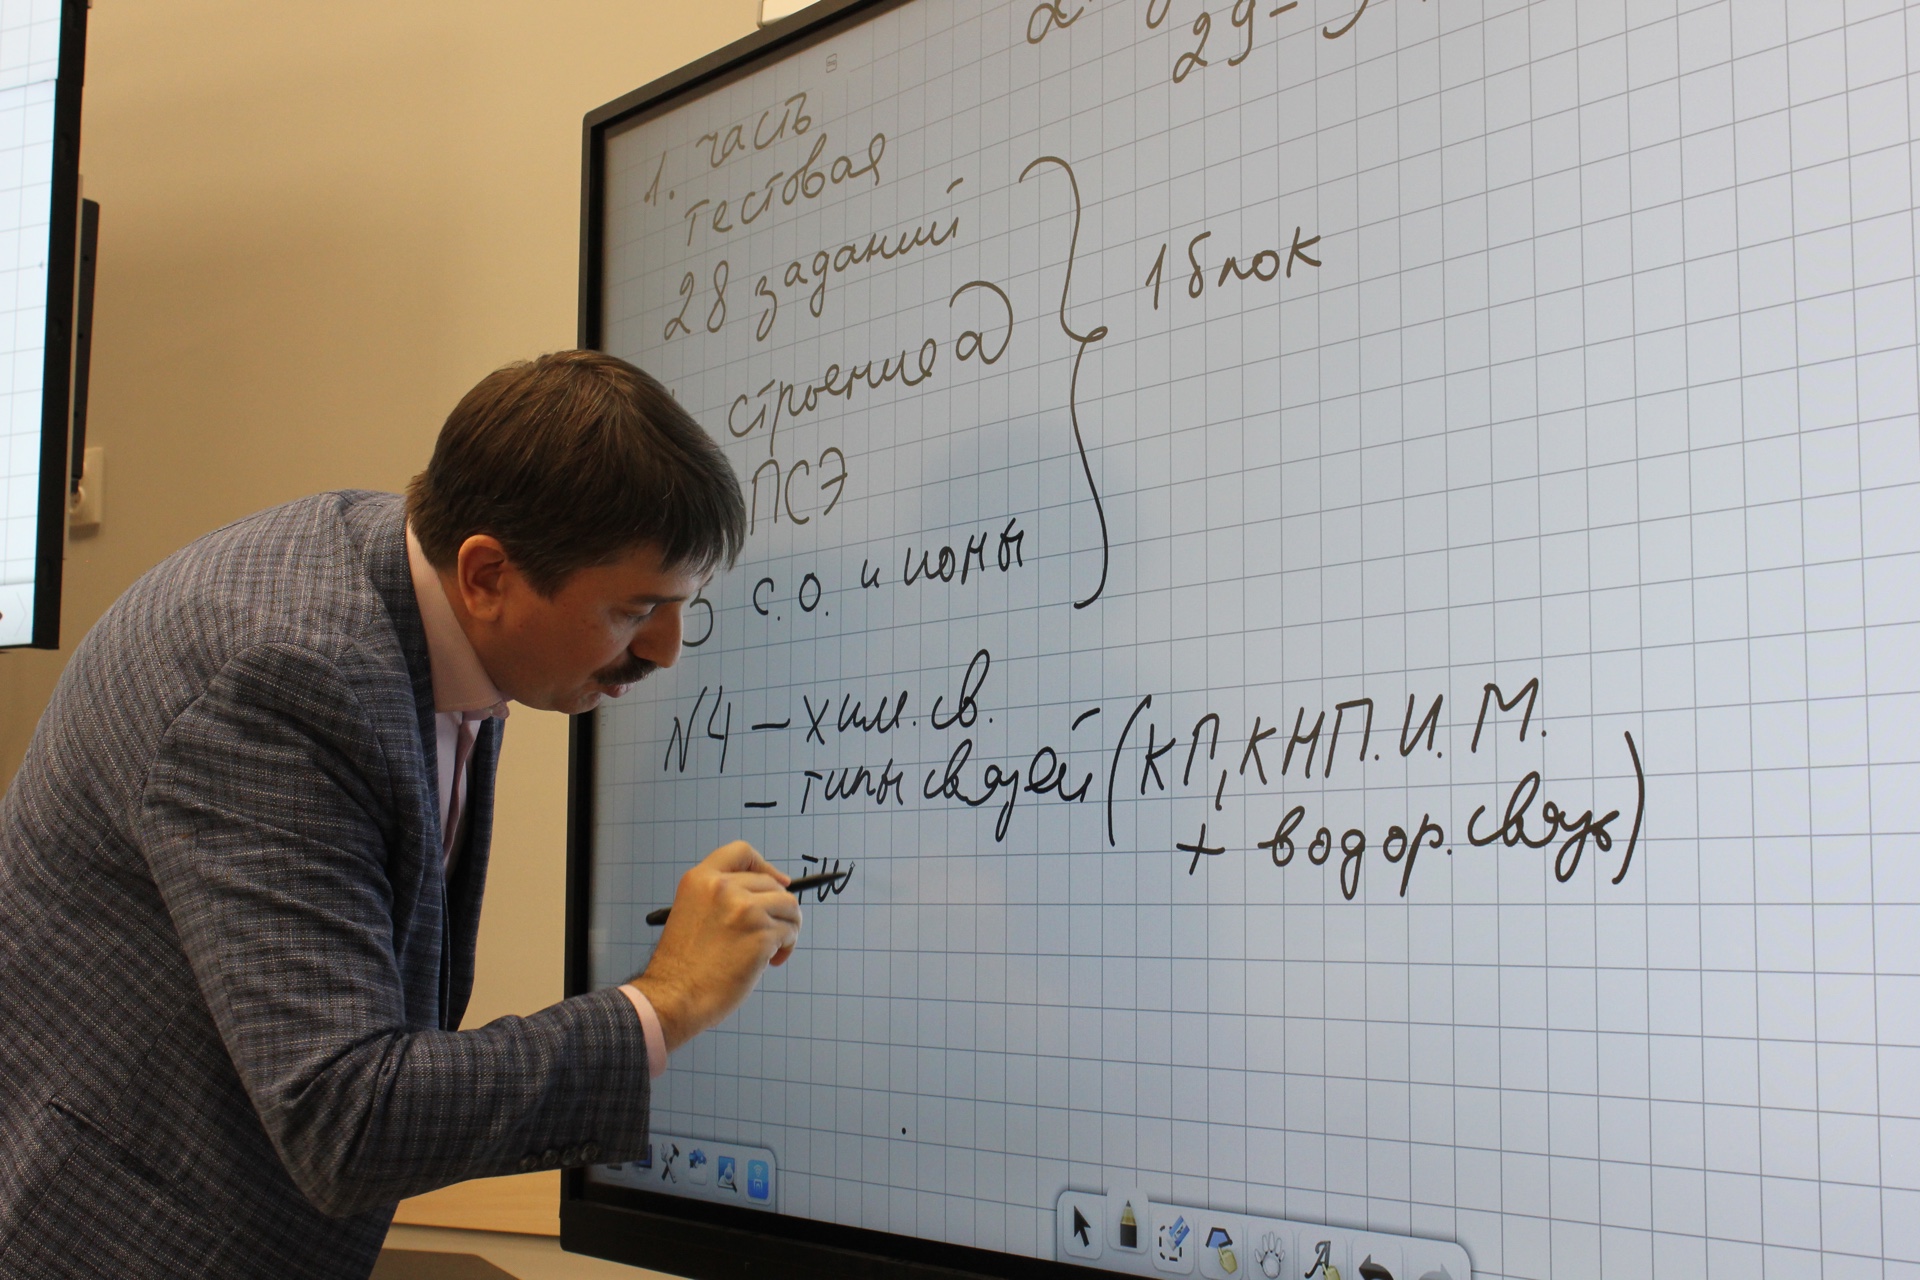 29-
1. часть
тестовая
28 заданий
строение а
ПСЭ
3 с.о. и ионы
1 блок
№4 – хим. св.
– типы связей (КП, КНП. И. М.
+ водор. связь)
– ти